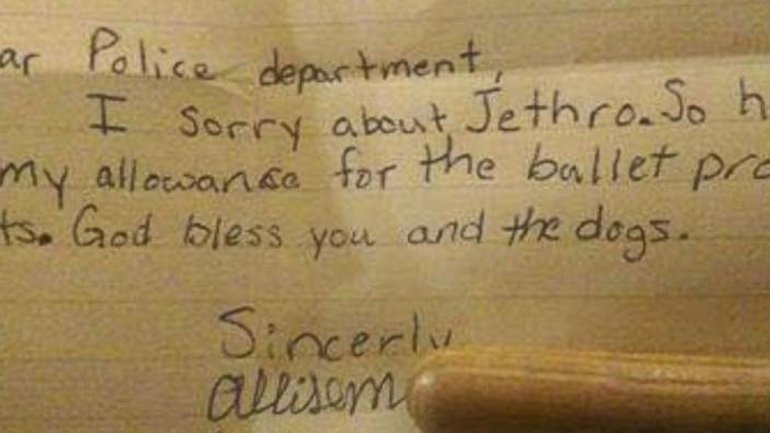 ar Police department,
I sorry about Jethro. So h
my allowance for the ballet pro
ts. God bless you and the dogs.
Sincerly
Allison